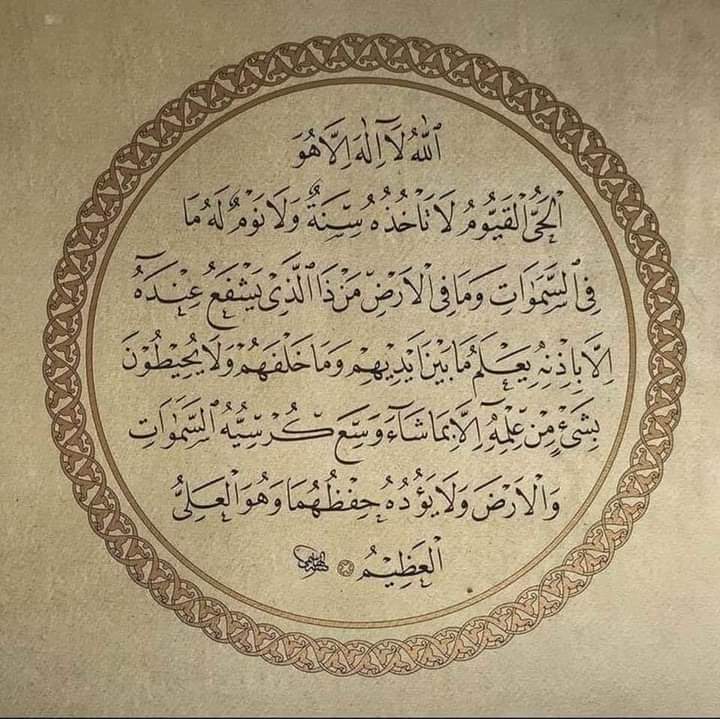 اَللّٰهُ لَآ اِلٰهَ اِلَّا هُوَ
الْحَيُّ الْقَيُّومُ لَا تَأْخُذُهُ سِنَةٌ وَلَا نَوْمٌ لَهُ مَا
فِي السَّمٰوَاتِ وَمَا فِي الْاَرْضِ مَنْ ذَا الَّذِي يَشْفَعُ عِنْدَهُ
اِلَّا بِاِذْنِهِ يَعْلَمُ مَا بَيْنَ اَيْدِيهِمْ وَمَا خَلْفَهُمْ وَلَا يُحِيطُونَ
بِشَيْءٍ مِنْ عِلْمِهِ اِلَّا بِمَا شَآءَ وَسِعَ كُرْسِيُّهُ السَّمٰوَاتِ
وَالْاَرْضَ وَلَا يَؤُدُهُ حِفْظُهُمَا وَهُوَ الْعَلِيُّ
الْعَظِيمُ